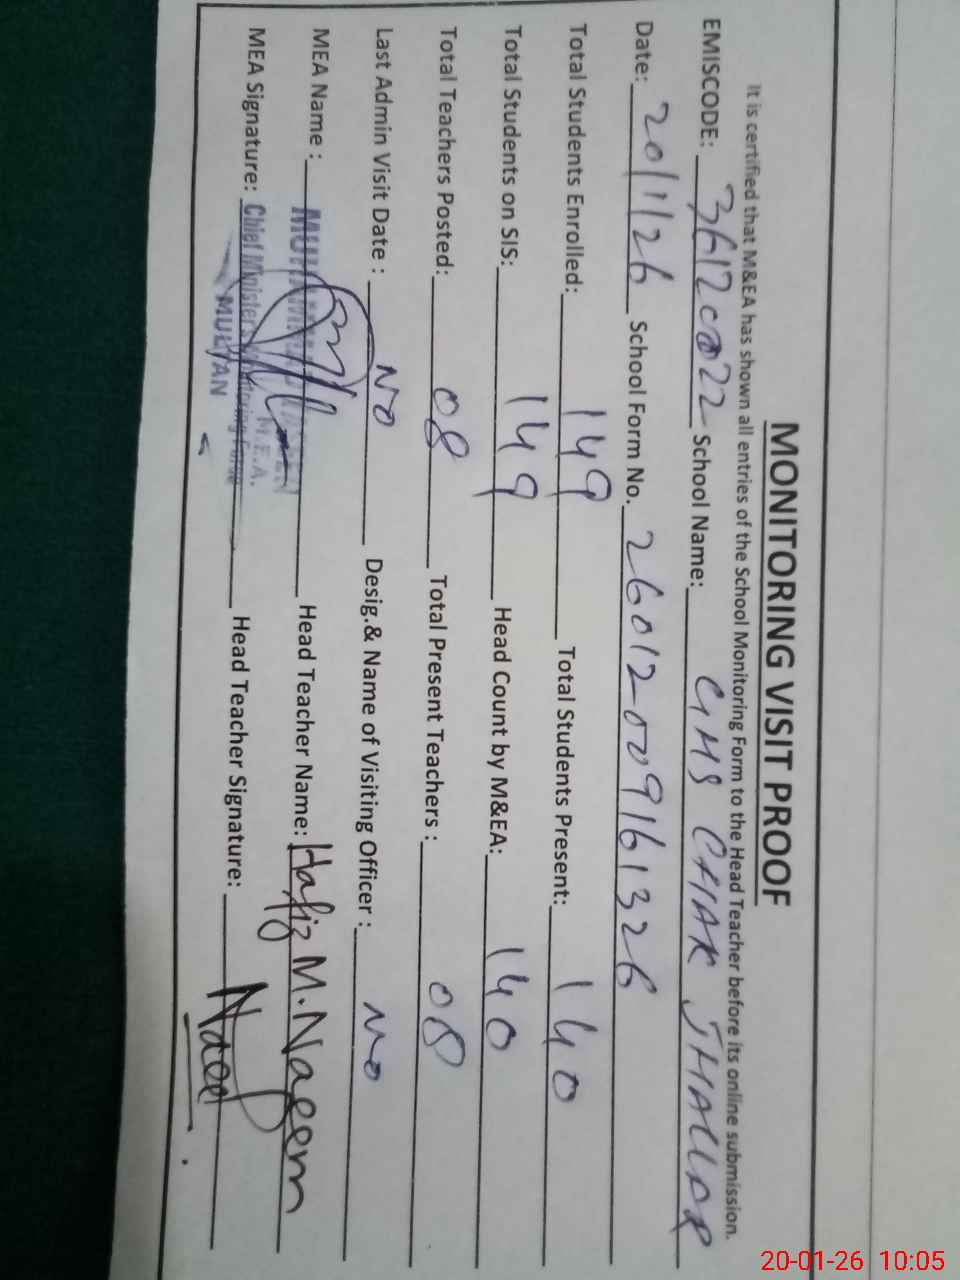 MONITORING VISIT PROOF
It is certified that M&EA has shown all entries of the School Monitoring Form to the Head Teacher before its online submission.
EMISCODE: 36120022 School Name: GHS CHAK JHALLAR
Date: 20/1/26 School Form No. 26012009161326
Total Students Enrolled: 149 Total Students Present: 140
Total Students on SIS: 149 Head Count by M&EA: 140
Total Teachers Posted: 08 Total Present Teachers : 08
Last Admin Visit Date : NO Desig.& Name of Visiting Officer : No
MEA Name : Head Teacher Name: Hafiz M. Naeem
M.E.A.
MEA Signature: Chief Minister's Monitoring Force Head Teacher Signature:
MULTAN
20-01-26 10:05